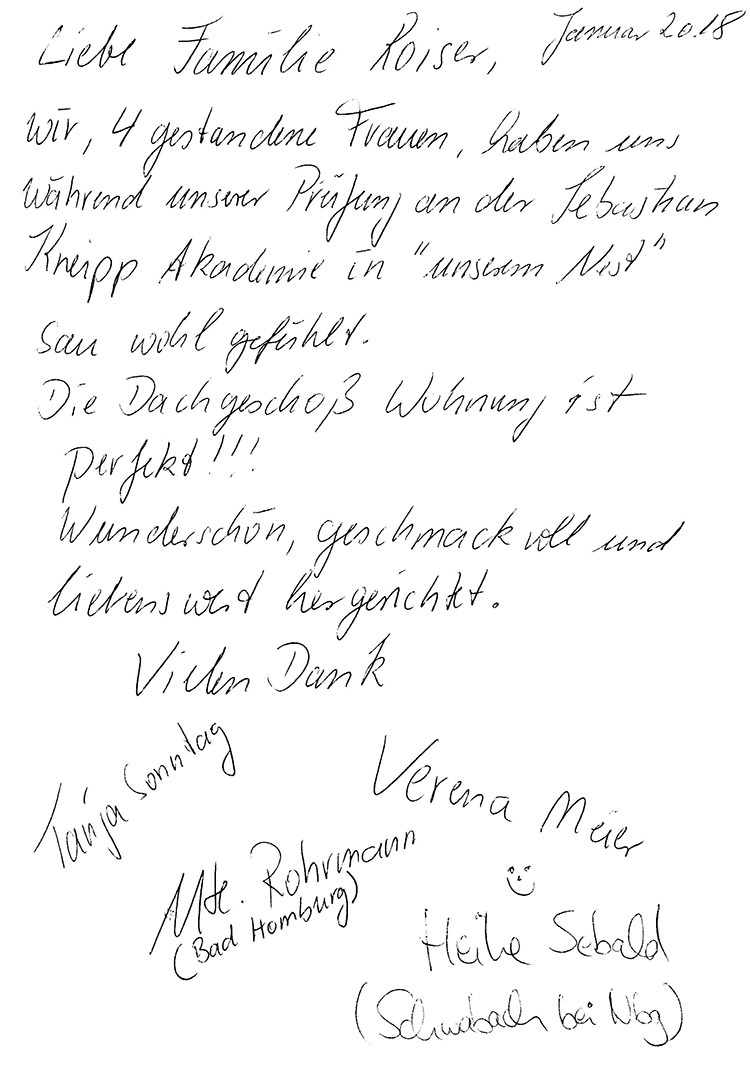 Januar 2018
Liebe Familie Roiser,
wir, 4 gestandene Frauen, haben uns
während unserer Prüfung an der Sebastian
Kneipp Akademie in "unserem Nest"
sau wohl gefühlt.
Die Dachgeschoß Wohnung ist
perfekt!!!
Wunderschön, geschmackvoll und
liebenswert hergerichtet.
Vielen Dank
Tanja Sonntag
Verena Meier
Ute. Rohrmann
(Bad Homburg)
Heike Sebald
(Schwabach bei Nbg)